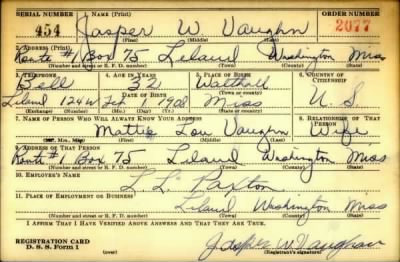 SERIAL NUMBER 1. NAME (Print) ORDER NUMBER
454 Jasper W Vaughn 2077
(First) (Middle) (Last)
2. ADDRESS (Print)
Route #1 Box 75 Leland Washington Miss
(Number and street or R. F. D. number) (Town) (County) (State)
3. TELEPHONE 4. AGE IN YEARS 5. PLACE OF BIRTH 6. COUNTRY OF CITIZENSHIP
Bell 32 Walthall
DATE OF BIRTH (Town or county)
Leland 124W 1908 Miss U. S.
7. NAME OF PERSON WHO WILL ALWAYS KNOW YOUR ADDRESS 8. RELATIONSHIP OF THAT PERSON
Mattie Lou Vaughn Wife
(Mr., Mrs., Miss) (First) (Middle) (Last)
9. ADDRESS OF THAT PERSON
Route #1 Box 75 Leland Washington Miss
(Number and street or R. F. D. number) (Town) (County) (State)
10. EMPLOYER'S NAME
L. L. Paxton
11. PLACE OF EMPLOYMENT OR BUSINESS
Leland Washington Miss
(Number and street or R. F. D. number) (Town) (County) (State)
I AFFIRM THAT I HAVE VERIFIED ABOVE ANSWERS AND THAT THEY ARE TRUE.
REGISTRATION CARD
D. S. S. Form 1 Jasper W Vaughan
(Registrant's signature)